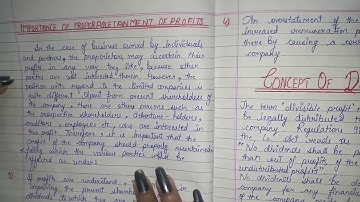 IMPORTANCE OF PROPER ASCETAINMENT OF PROFITS
In the case of business owned by individuals
and partners, the proprietors may ascertain their
profit in any way they like, because other
parties are not interested therein. However, the
position with regards to the limited companies is
quite different. Apart from present shareholders of
the company, there are other persons such as
the prospective shareholders, debenture-holders,
creditors, employees etc., who are interested in
the profit. Therefore it is important that the
profit of the company should properly ascertained
failing which the various parties shall be
affected as under:
1) If profits are understated,
depriving the present
dividends to which they are
4) An overstatement of the
increased remuneration
there by causing a
company.
CONCEPT OF D
The term "divisible profit"
be legally distributed
company. Regulations
Act words
"No dividends shall be
than out of profits of the
undistributed profits"
No dividends shall be
company for any financial